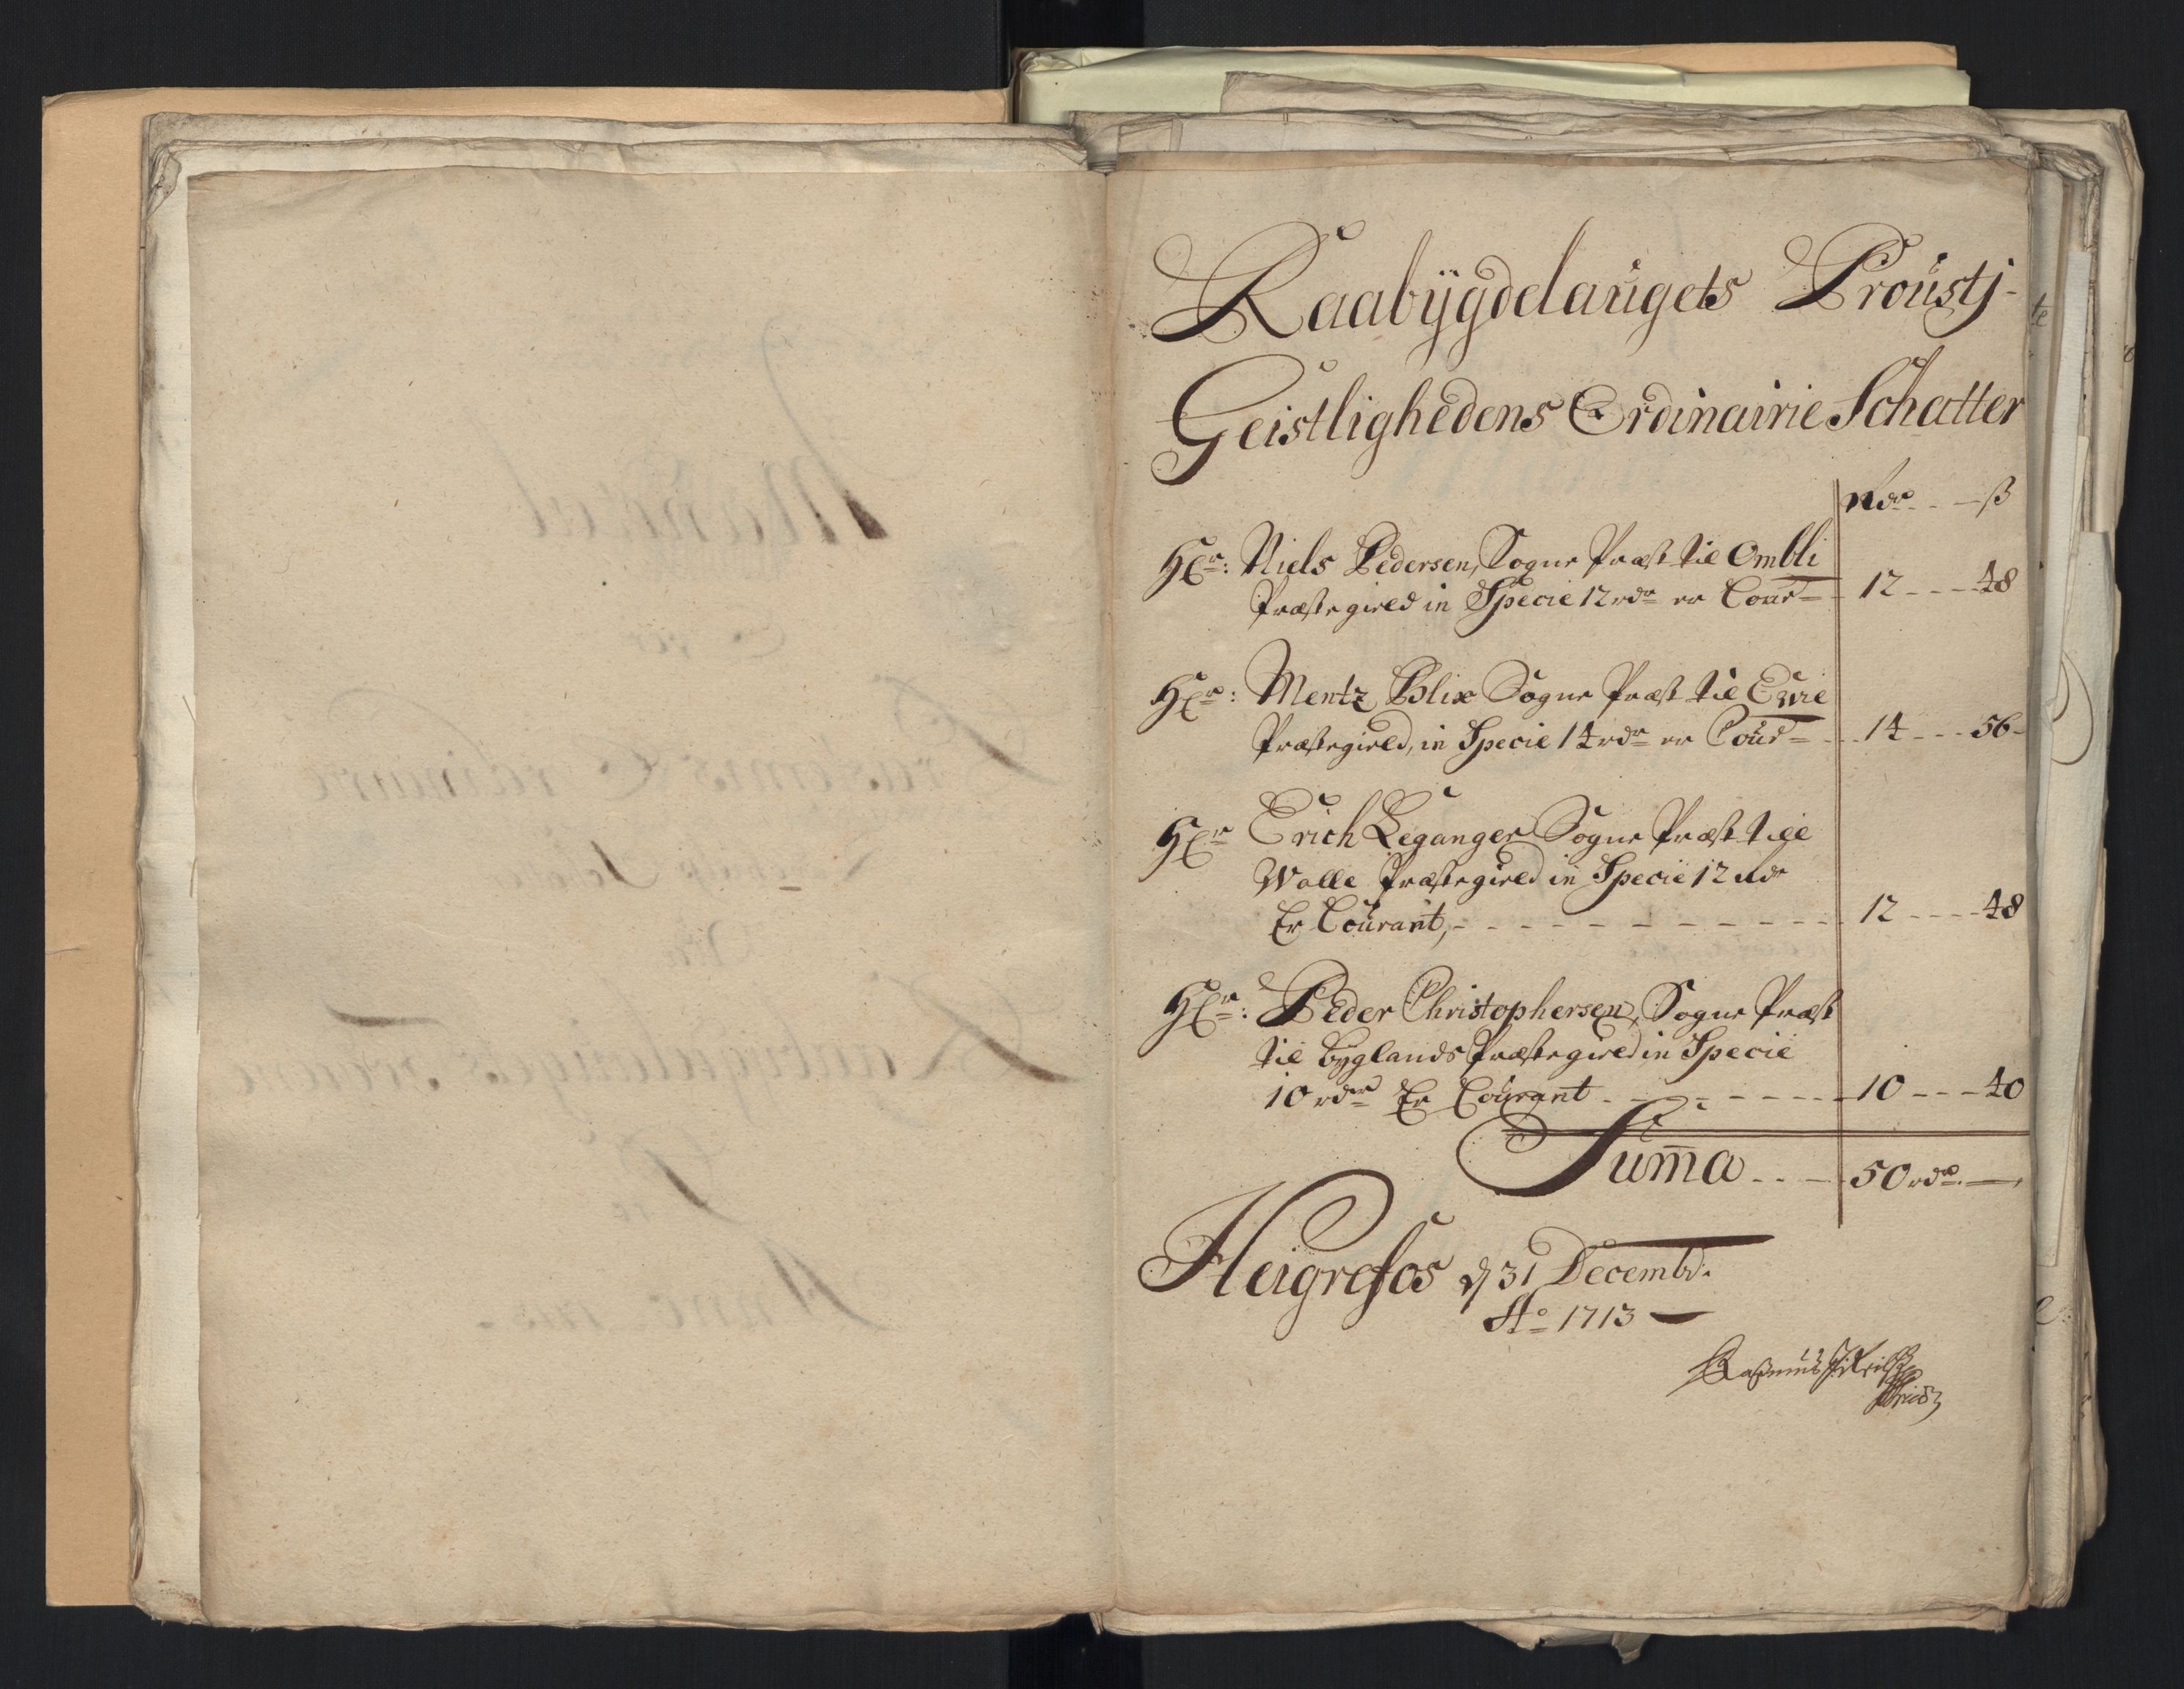 Raabÿgdelaugets Proustj-
Geistlighedens Ordinairie Schatter
Rdr - - ß
Hr: Niels Pedersen, Sogne Præst til Ombli
Præstegield in Specie 12 rdr er Cour= 12 - - - 48
Hr: Mentz Blix Sogne Præst til Ewie
Præstegield, in Specie 14 rdr er Cour= - - 14 - - - 56 -
Hr Erich Leganger Sogne Præst till
Walle Præstegield in Specie 12 rdr
Er Courant, - - - - - - - - - - 12 - - - 48
Hr: Peder Christophersen, Sogne Præst
til Byglands Præstegield in Specie
10 rdr Er Courant - - - - - - - 10 - - - 40
Suma - - - 50 rdr. —
Heigrefos d 31 Decembr.
Ao 1713 —